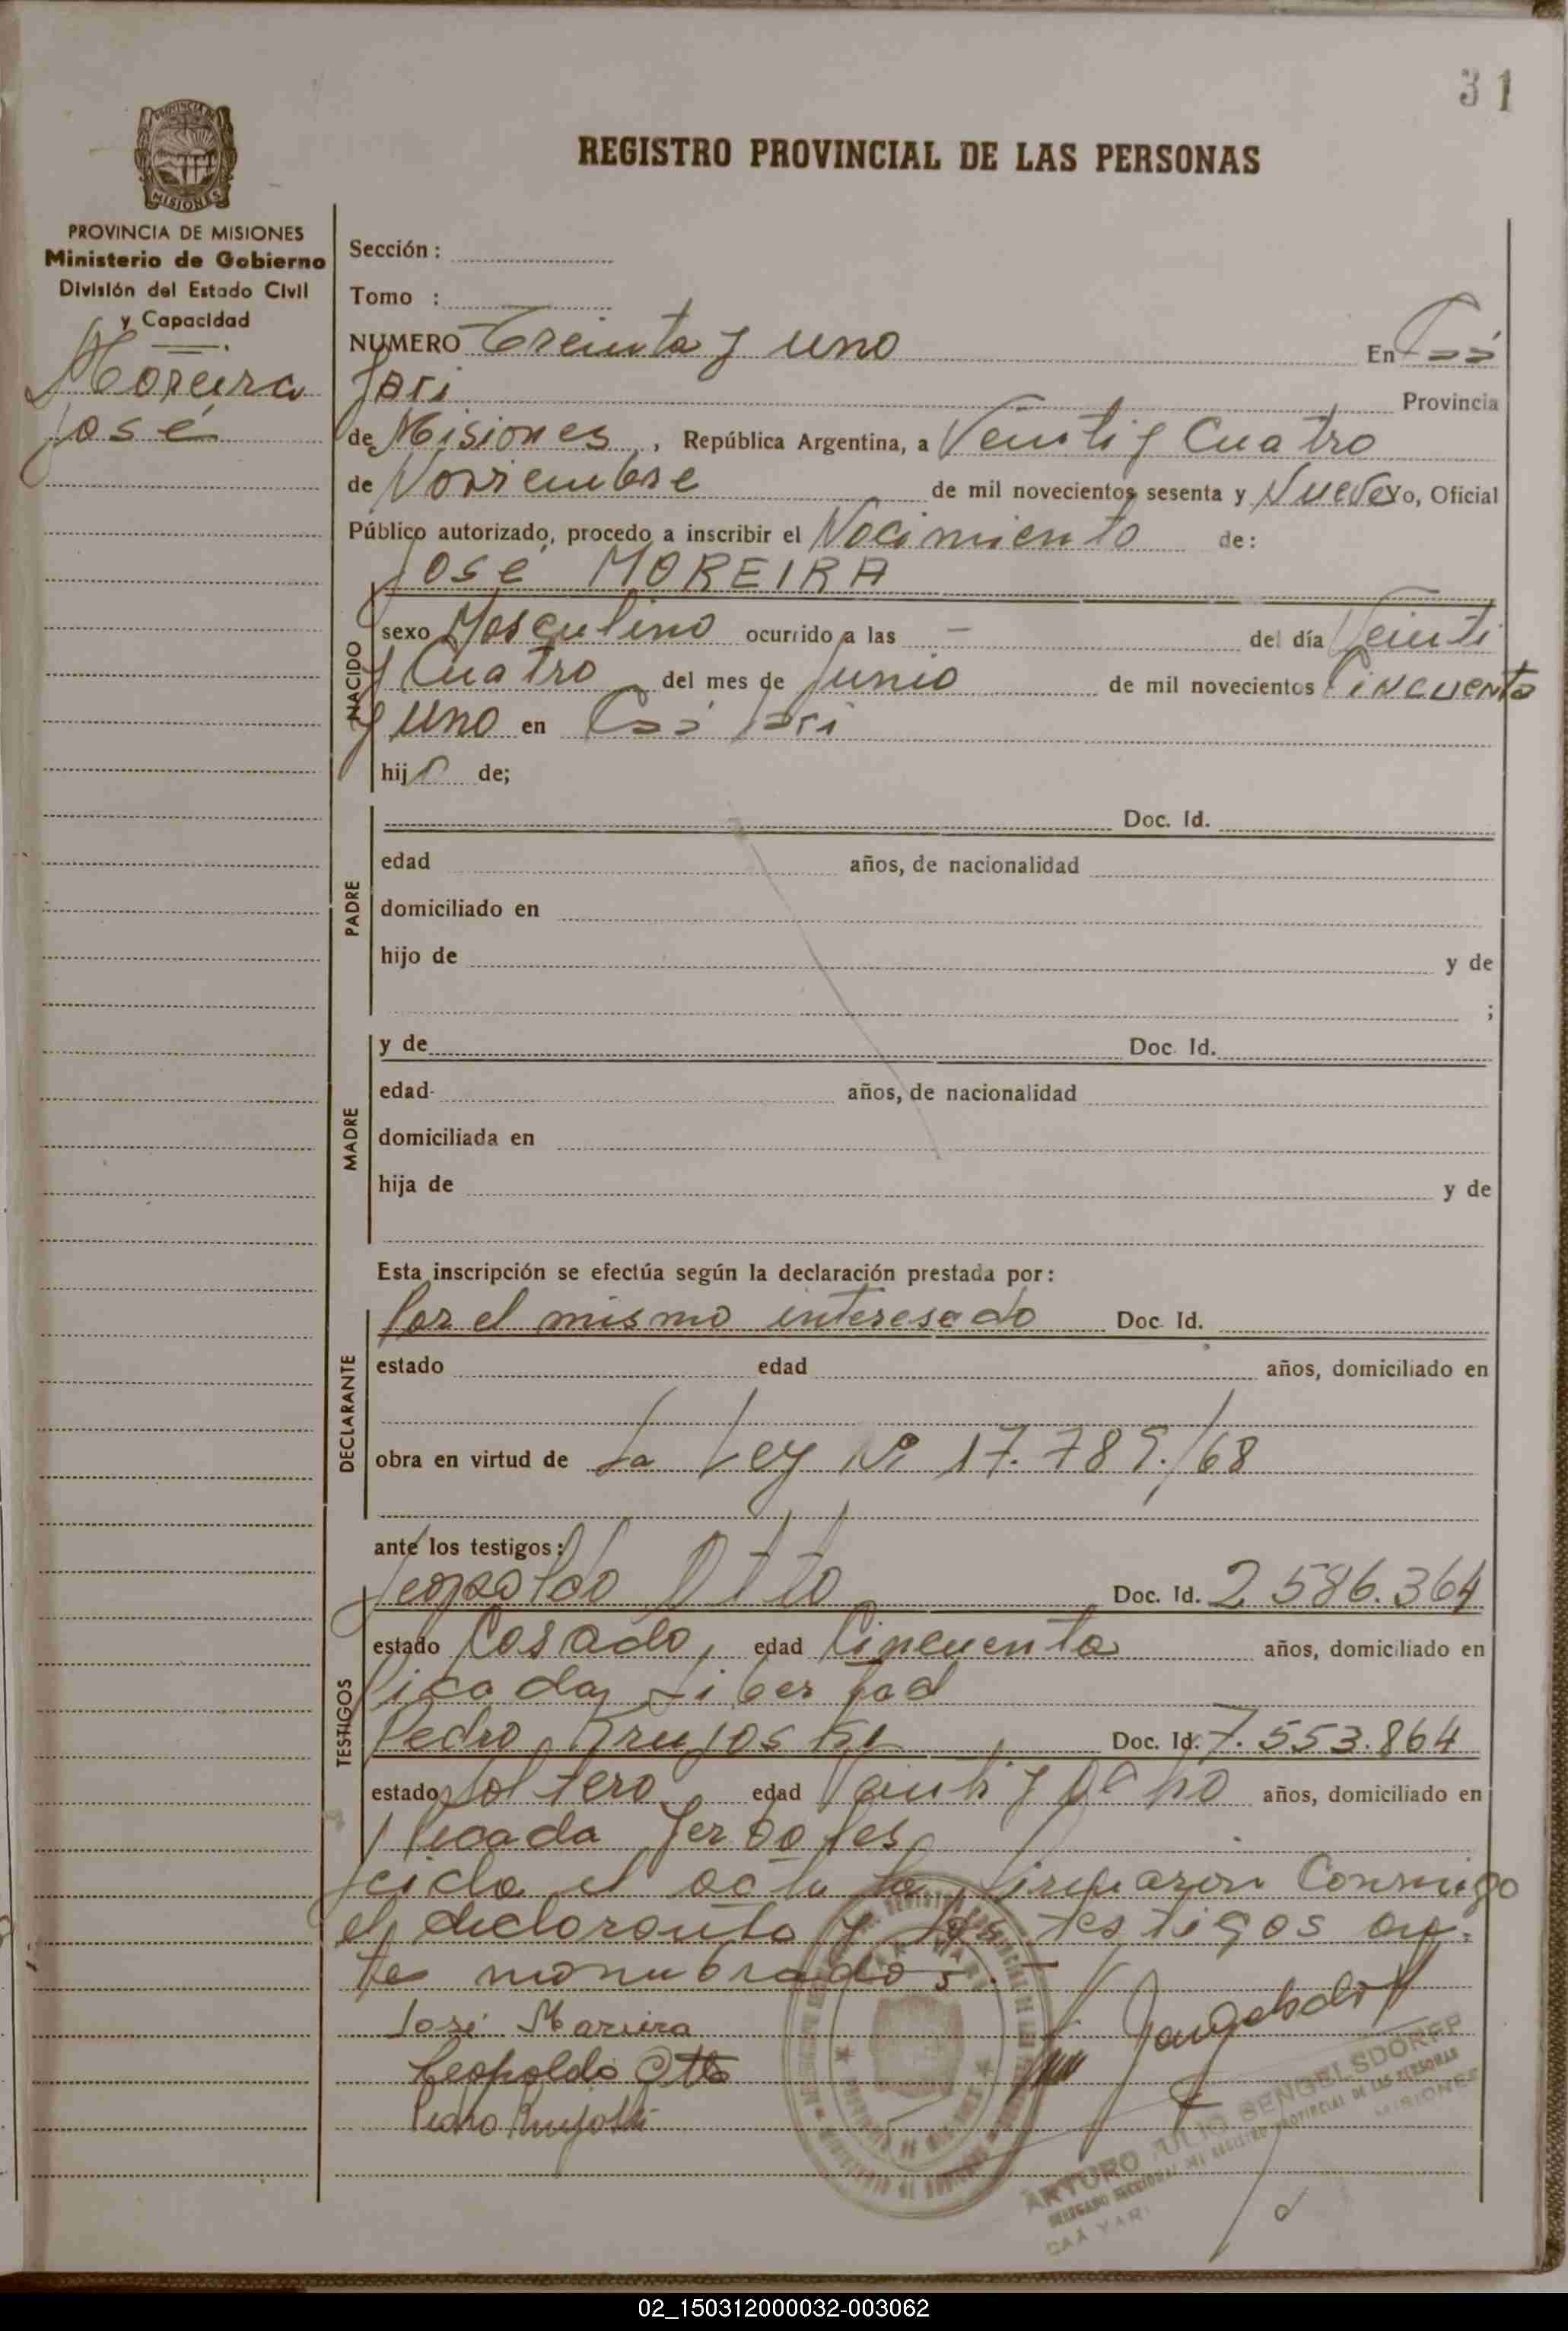 31
PROVINCIA DE MISIONES
REGISTRO PROVINCIAL DE LAS PERSONAS
PROVINCIA DE MISIONES
Ministerio de Gobierno
División del Estado Civil
y Capacidad
Moreira
José
Sección :
Tomo :
NUMERO Treinta y uno En Caá
Yari Provincia
de Misiones , República Argentina, a Veinti y Cuatro
de Noviembre de mil novecientos sesenta y Nueve Yo, Oficial
Público autorizado, procedo a inscribir el Nacimiento de:
José MOREIRA
NACIDO
sexo Masculino ocurrido a las — del día Veinti
y Cuatro del mes de Junio de mil novecientos Cincuenta
y uno en Caá Yari
hijo de;
PADRE
Doc. Id.
edad años, de nacionalidad
domiciliado en
hijo de y de
;
MADRE
y de Doc. Id.
edad años, de nacionalidad
domiciliada en
hija de y de
Esta inscripción se efectúa según la declaración prestada por:
DECLARANTE
Por el mismo interesado Doc. Id.
estado edad años, domiciliado en
obra en virtud de La Ley Nº 17.789./68
ante los testigos:
TESTIGOS
Leopoldo Otto Doc. Id. 2.586.364
estado Casado, edad Cincuenta años, domiciliado en
Picada Libertad
Pedro Doc. Id. 7.553.864
estado Soltero edad Veinti y Ocho años, domiciliado en
Picada Yerbales
Leida el acta la firmaron Conmigo
el declarante y los testigos an-
tes nombrados.—
José Moreira
Leopoldo Otto
Pedro
ARTURO JULIO BENGELSDORFF
DELEGADO SECCIONAL DEL REGISTRO PROVINCIAL DE LAS PERSONAS
CAÁ YARI MISIONES
02_150312000032-003062